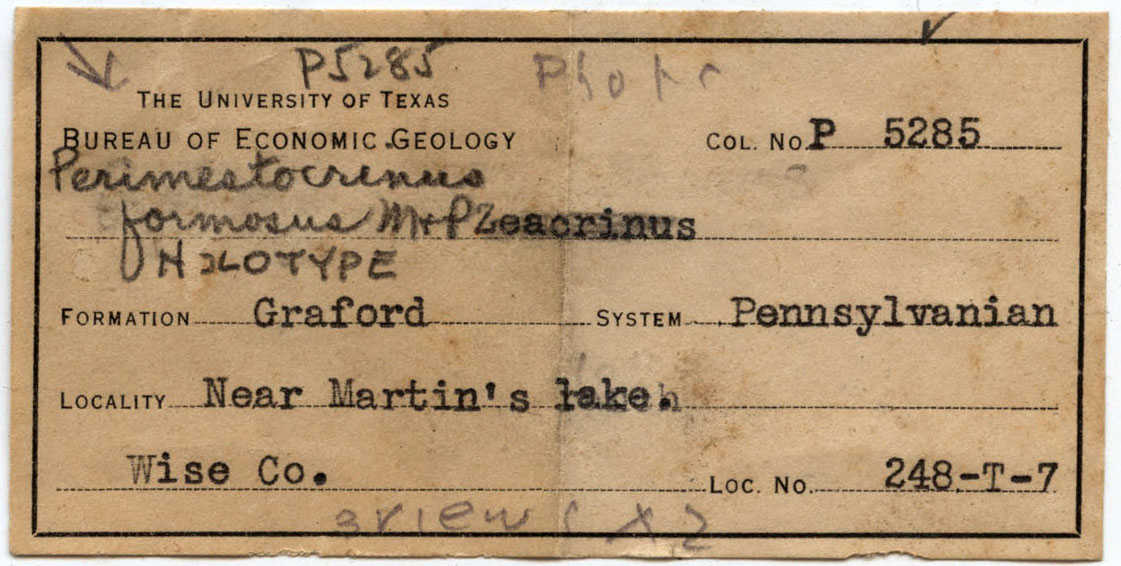 P5285 Photo
THE UNIVERSITY OF TEXAS
BUREAU OF ECONOMIC GEOLOGY COL. NO. P 5285
Perimestocrinus
formosus M+P Zeacrinus
HOLOTYPE
FORMATION Graford SYSTEM Pennsylvanian
LOCALITY Near Martin's lake.
Wise Co. LOC. NO. 248-T-7
3 views X2